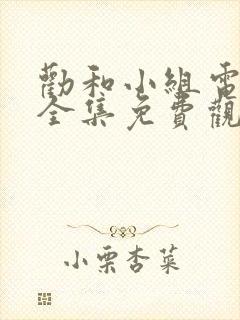 勸和小組電
全集免費觀
小栗杏菜